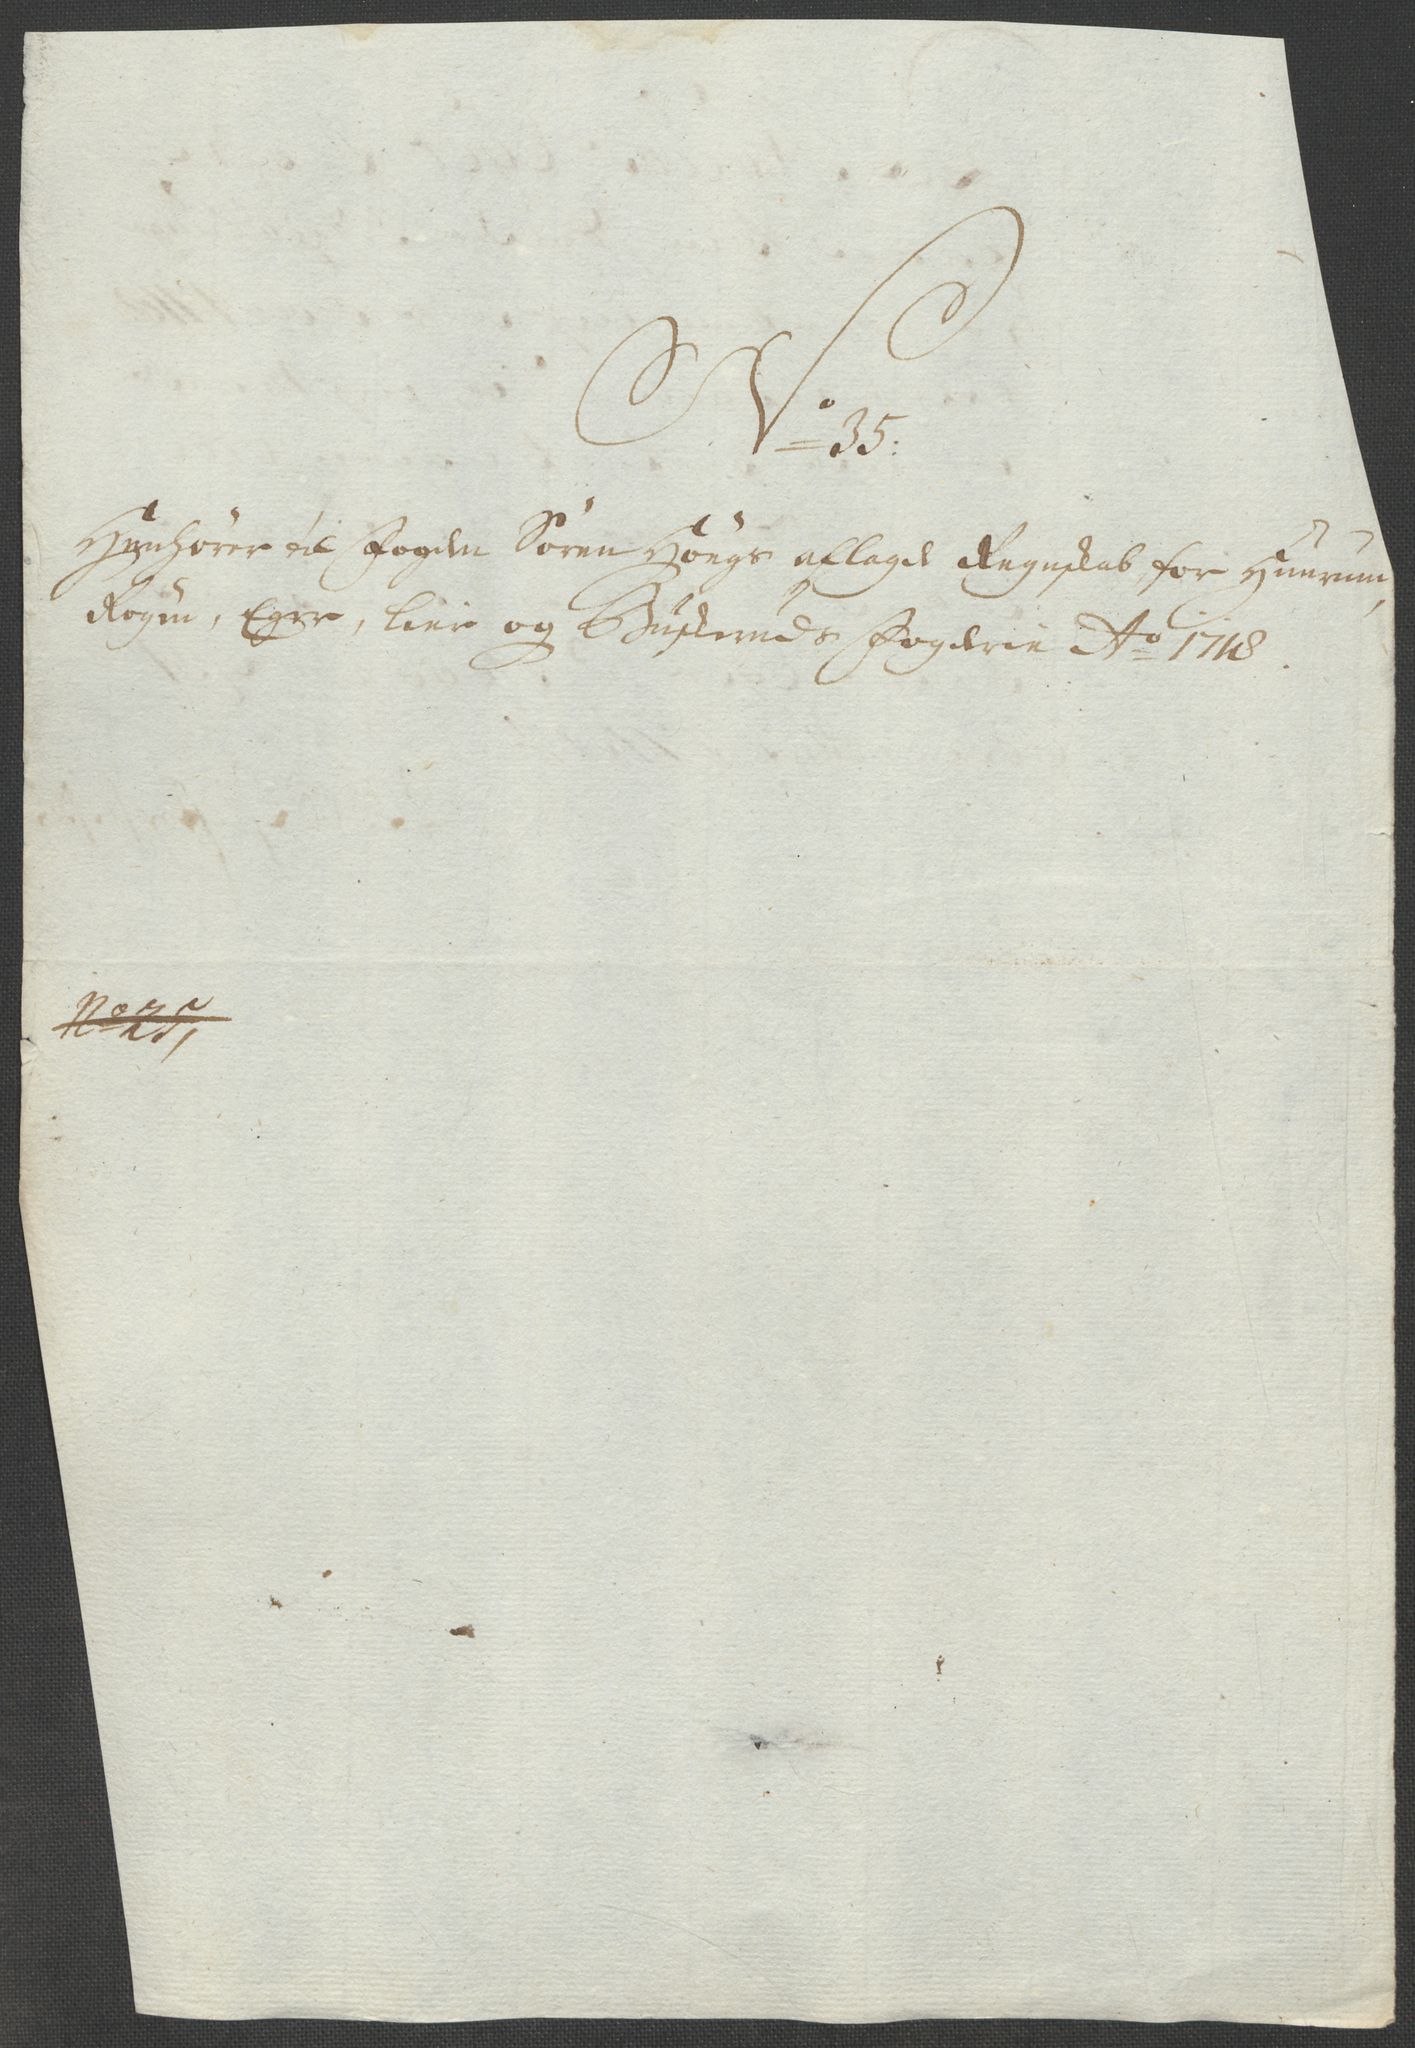 No 35:
Henhörer til Fogden Sören Höegs aflagde Regnskab for Huurum,
Rögen, Eger, Lier og Buskeruds Fogderie Ao 1718.
No 25,